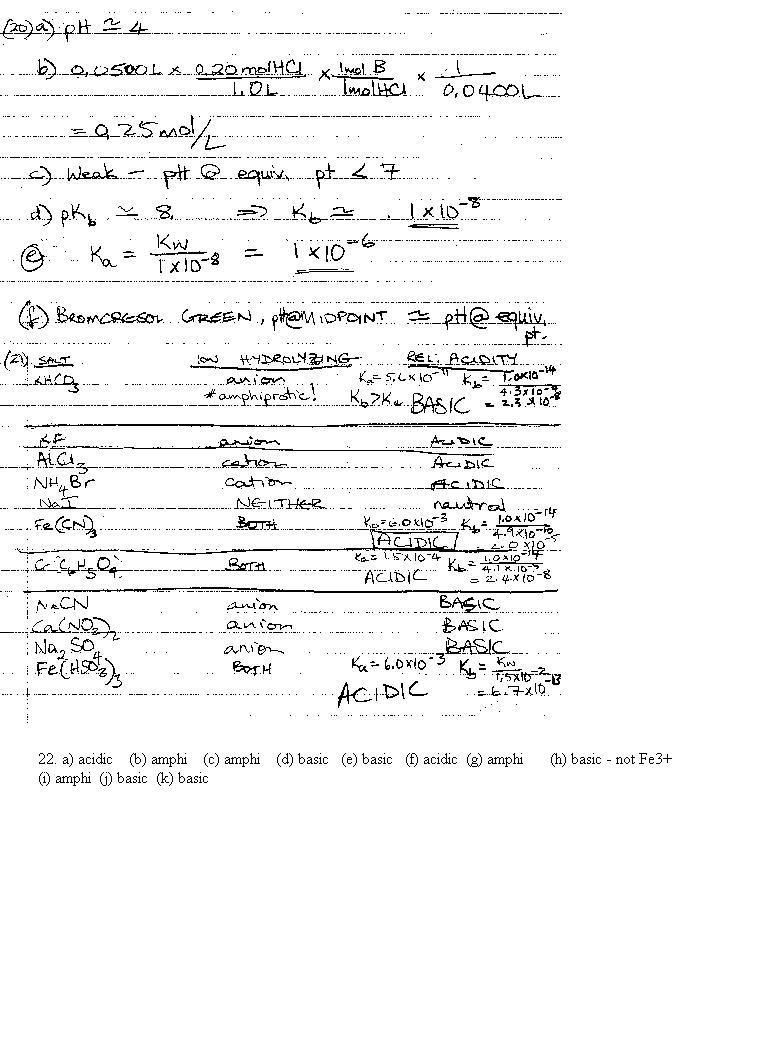 (20) a) pH ≃ 4
b) 0.0500L × 0.20 mol HCl / 1.0L × 1mol B / 1mol HCl × 1 / 0.0400L
= 0.25 mol/L
c) Weak - pH @ equiv. pt < 7
d) pKb ≃ 8 ⇒ Kb ≃ 1 × 10⁻⁸
e) Ka = Kw / 1×10⁻⁸ = 1 × 10⁻⁶
(f) BROMCRESOL GREEN, pH@MIDPOINT ≃ pH@ equiv. pt.
(21) SALT ION HYDROLYZING REL. ACIDITY
KHCO₃ anion Ka = 5.6×10⁻¹¹ Kb = 1.0×10⁻¹⁴ / 4.3×10⁻⁷
*amphiprotic! Kb > Ka BASIC = 2.3 × 10⁻⁸
KF anion ACIDIC
AlCl₃ cation ACIDIC
NH₄Br cation ACIDIC
NaI NEITHER neutral
Fe(CN)₃ BOTH Ka = 6.0×10⁻³ Kb = 1.0×10⁻¹⁴ / 4.9×10⁻¹⁰
ACIDIC = 2.0×10⁻⁵
BOTH Ka = 1.5×10⁻⁴ Kb = 1.0×10⁻¹⁴
ACIDIC = 2.4×10⁻⁸
NaCN anion BASIC
Ca(NO₂)₂ anion BASIC
Na₂SO₄ anion BASIC
Fe(HSO₃)₃ BOTH Ka = 6.0×10⁻³ Kb = Kw / 1.5×10⁻²
ACIDIC = 6.7×10⁻¹³
22. a) acidic (b) amphi (c) amphi (d) basic (e) basic (f) acidic (g) amphi (h) basic - not Fe3+
(i) amphi (j) basic (k) basic